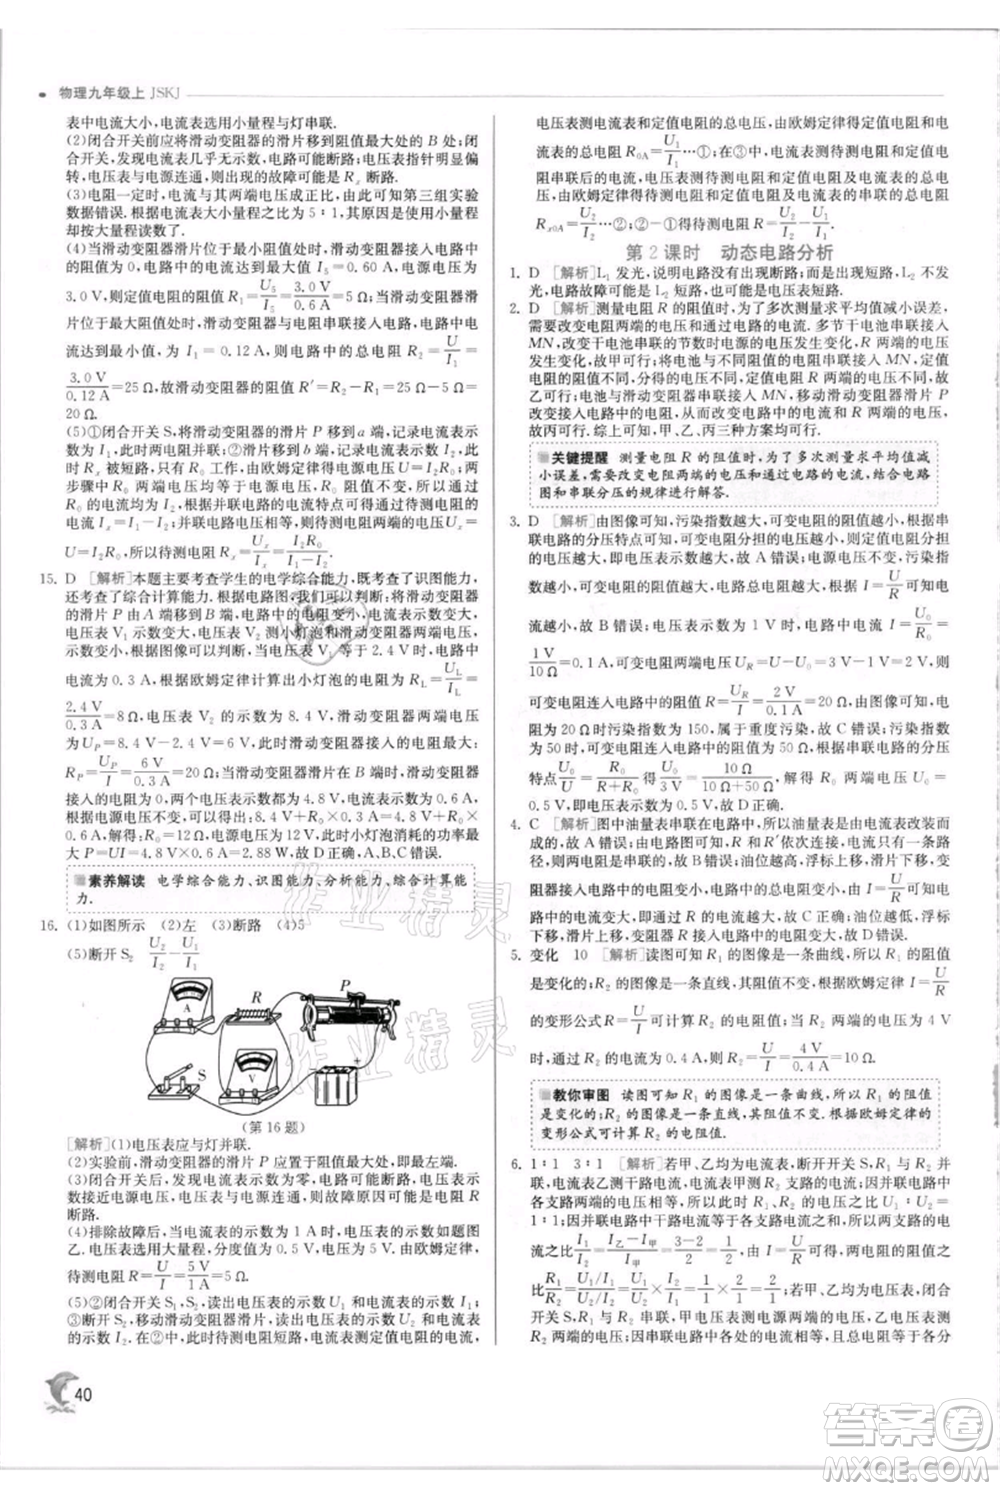 物理九年级上 JSKJ
表中电流大小,电流表选用小量程与灯串联.
(2)闭合开关前应将滑动变阻器的滑片移到阻值最大处的 B 处;
闭合开关,发现电流表几乎无示数,电路可能断路;电压表指针明显偏
转,电压表与电源连通,说明出现的故障可能是 Rx 断路.
(3)电阻一定时,电流与其两端电压成正比,由此可知第三组实验
数据错误.根据电流表大小量程之比为 5∶1,其原因是使用小量程
却按大量程读数了.
(4)当滑动变阻器滑片位于最左端时,滑动变阻器阻值为零,电路中
的电流达到最大值 I5=0.60 A,电源电压即为电阻的电压 U5=
3.0 V,则待定值电阻的阻值 R1=U5/I5=3.0 V/0.6 A=5 Ω;当滑动变阻器滑
片位于最右端时,滑动变阻器最大阻值与电阻串联接入电路中,电
流达到最小值,为 I=0.12 A,则电路中的总电阻 R2=U/I=
3.0 V/0.12 A=25 Ω,故滑动变阻器的阻值 R′=R2-R1=25 Ω-5 Ω=
20 Ω.
(5)①闭合开关 S,将滑动变阻器的滑片 P 移到 a 端,记录电流表示
数为 I1,此时两电阻并联;②断开开关 S,记录电流表示数为 I2,此
时 Rx 被短路,只有 R0 工作,由欧姆定律得电源电压 U=I2R0;两
步骤中在并联时通过 R0 的电流相等,故①中并联时通过定值电阻
R0 的电流为 I2,根据并联电路的电流特点可得通过待测电阻的
电流 Ix=I1-I2;因并联各支路电压相等,则待测电阻的电压 Ux=
U=I2R0,所以待测电阻 Rx=Ux/Ix=I2R0/(I1-I2).
15. D [解析]本题主要考查学生的电学综合能力,既考查了识图能力,
还考查了综合计算能力.根据电路图,我们可以判断:将滑动变阻器
的滑片 P 由 A 端移动到 B 端时,电阻变小,电流表示数变大,电
压表 V1 示数变大,电压表 V2 测小灯泡和滑动变阻器的两端电压,
示数变小.根据图像可以判断,当电压表 V1 等于 2.4 V 时,通过的
电流为 0.3 A,根据欧姆定律计算出小灯泡的电阻为 RL=UL/IL=
2.4 V/0.3 A=8 Ω,电压表 V2 的示数为 8.4 V,滑动变阻器两端电压
UP=8.4 V-2.4 V=6 V,此时滑动变阻器接入的电阻
RP=UP/I=6 V/0.3 A=20 Ω;当滑动变阻器滑片在 B 端时,滑动变阻器接
入的电阻为 0,两个电压表示数都为 4.8 V,电流表示数为 0.6 A.
根据电源电压不变,可以得出:8.4 V+R0×0.3 A=4.8 V+R0×
0.6 A,解得 R0=12 Ω,电源电压为 12 V,此时小灯泡消耗的功率最
大 P=UI=4.8 V×0.6 A=2.88 W,故 D 正确,A、B、C 错误.
素养解读 电学综合能力、识图能力、分析能力、综合计算能
力.
16. (1)如图所示 (2)左 (3)断路 (4)5
(5)断开 S2 U1/I1-U2/I2
A
R
P
S
V
(第 16 题)
[解析](1)电压表应与灯并联.
(2)实验前,滑动变阻器的滑片 P 应置于最大阻值处,即最左端.
(3)闭合开关后,发现电流表示数为零,电路可能断路,电压表示数
接近电源电压,电压表与电源连通,故电路故障可能是电阻 R 断路.
(4)排除故障后,当电流表的示数为 1 A 时,电压表示数如题图
乙.电压表选用大量程,分度值为 0.5 V,示数为 5 V,由欧姆定律,
待测电阻 R=U/I=5 V/1 A=5 Ω.
(5)②闭合开关 S1,S2,读出电压表的示数 U1 和电流表的示数 I1;
③断开开关 S2,闭合开关 S1,读出此时电压表的示数 U2 和电流表
的示数 I2.②中,此时待测电阻短路,电压表测定值电阻的电流,
电压表测电流表和定值电阻的电压,由欧姆定律得定值电阻和电
流表总电阻 R0A=U1/I1…①;在③中,电流表测待测电阻与定值电阻
串联后的电流,电压表测待测电阻和定值电阻及电流表的串联的
电压,由欧姆定律得待测电阻和定值电阻及电流表的串联总电阻
Rx0A=U2/I2…②;②-①得待测电阻 R=U2/I2-U1/I1.
第 2 课时 动态电路分析
1. D [解析]L1 发光,说明电路没有出现断路;而应是出现短路,L2 不发
光,电路故障可能是 L2 短路,也可能是电压表短路.
2. D [解析]测量电阻 R 的阻值时,为了多次测量求平均值减小误差,
需要改变电阻两端的电压和通过电路的电流.多节干电池串联接入
MN,改变干电池的节数,可改变电阻两端的电压,使电路中的电流
发生变化,故甲行;将电池与不同阻值的电阻串联接入 MN,电路
中的总电阻不同,分得的电压不同,电阻 R 两端的电压发生变化,故
乙可行;电池与滑动变阻器串联接入 MN,移动滑动变阻器滑片 P
改变接入中的电阻,从而改变电路中的电流和电阻 R 两端的电压,
故丙可行.综上可知,甲、乙、丙三种方案均可行.
关键提醒 测量电阻 R 的阻值时,为了多次测量求平均值减
小误差,需要改变电阻两端的电压和通过电路的电流,结合电路
图和串联分压的规律进行解答.
3. D [解析]由图像可知,污染指数越大,可变电阻的阻值越小,根据串
联电路的分压特点可知,可变电阻分担的电压越小,而定值电阻分
担的电压越大,即电压表示数越大,故 A 错误;电源电压不变,污染指
数越小,可变电阻的阻值越大,电压表示数越小,根据 I=U0/R0 可知,
电流越小,故 B 错误;电压表示数为 1 V 时,电路中电流 I=U0/R0=
1 V/10 Ω=0.1 A,可变电阻两端电压 UR=U-U0=3 V-1 V=2 V,则
可变电阻连入电路中的阻值 R=UR/I=2 V/0.1 A=20 Ω,由图像可知,电
阻为 20 Ω 时对应的污染指数为 150,属于重度污染,故 C 错误;污染指数
为 50 时,可变电阻连入电路中的阻值为 50 Ω,根据串联电路的分压
特点 U0/U=R0/(R+R0) 得 U0/3 V=10 Ω/(10 Ω+50 Ω),解得 R0 两端的电压 U0=
0.5 V,即电压表示数为 0.5 V,故 D 正确.
4. C [解析]图中油量表串联在电路中,所以油量表是由电流表改装而
成的,故 A 错误;由图可知,R 和 R′依次连接,为串联电路,起保护
电路的作用,故 B 错误;油位越高,浮标上移,滑片下移,滑动变阻器
接入电路的电阻变小,电路中的电流变大,由于电源电压不变,所以电
路中的电流变大,油量表示数变大,故 C 正确;油位越低,浮标
下移,滑片上移,滑动变阻器 R 接入电路的电阻越大,故 D 错误.
5. 变化 10 [解析]读图可知 R1 的图像是一条曲线,所以 R1 的阻值
是变化的;R2 的图像是一条直线,其阻值不变,根据欧姆定律 I=U/R
的变形公式 R=U/I 可计算 R2 的阻值,当 R2 两端的电压为 4 V
时,通过 R2 的电流为 0.4 A,则 R2=U/I=4 V/0.4 A=10 Ω.
教你审图 读图可知 R1 的图像是一条曲线,所以 R1 的阻值
是变化的;R2 的图像是一条直线,其阻值不变,根据欧姆定律的
变形公式可计算 R2 的电阻值.
6. 1∶1 3∶1 [解析]若甲、乙均为电流表,断开开关 S,R1 与 R2 并
联,电流表乙测干路电流,电流表甲测 R2 支路电流,因并联电路中
各支路两端的电压相等,所以此时 R1、R2 两端的电压之比 U1∶U2=
1∶1;因并联电路中干路电流等于各支路电流之和,所以通过的电
流之比 I1/I2=(I乙-I甲)/I甲=(3-2)/2=1/2,由欧姆定律可得,两电阻的阻值之
比 R1/R2=(U1/I1)/(U2/I2)=I2/I1=2/1;若甲、乙均为电压表,闭合
开关 S,R1 与 R2 串联,电压表乙测电源两端的电压,电压表甲测
R2 两端的电压,因串联电路中各处的电流相等,且总电压等于各分
40
作业精灵
作业精灵
答案卷
MXQE.COM